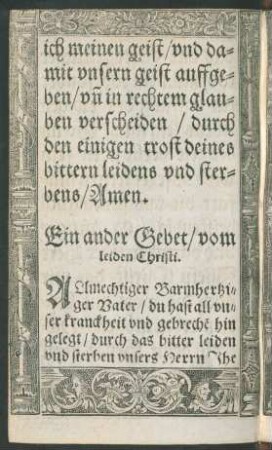 ich meinen geist/ vnd da-
mit vnsern geist auffge-
ben/ vñ in rechtem glau-
ben verscheiden / durch
den einigen trost deines
bittern leidens vnd ster-
bens/ Amen.
Ein ander Gebet/ vom
leiden Christi.
ALlmechtiger Barmhertzi-
ger Vater/ du hast all vn-
ser kranckheit vnd gebreche hin
gelegt/ durch das bitter leiden
vnd sterben vnsers Herrn Jhe